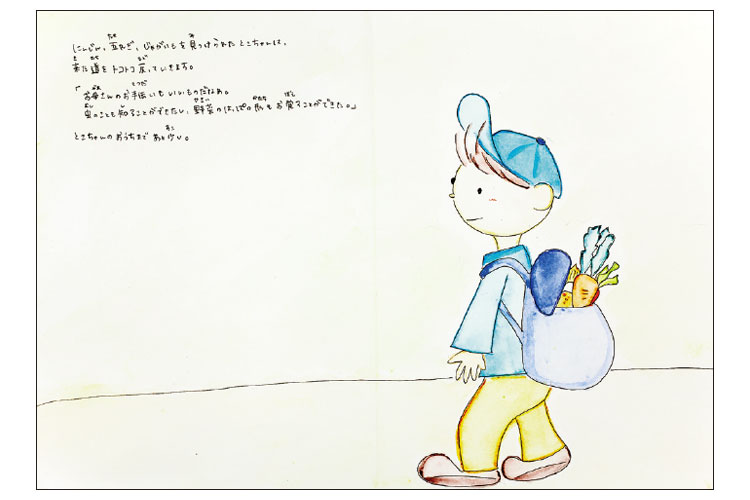 にんじん、玉ねぎ、じゃがいもを見つけられたとこちゃんは、
来た道をトコトコ戻っていきます。
「お母さんのお手伝いもいいものだなぁ。
虫のことも知ることができたし、野菜のはっぱの形もお覚ることができた。」
とこちゃんのおうちまであと少し。